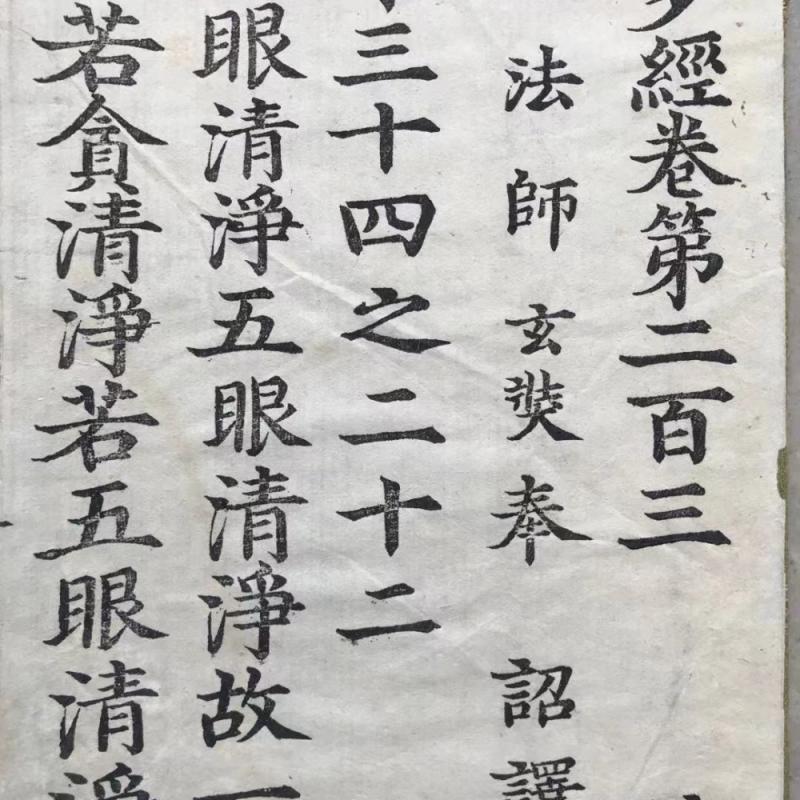 多經卷第二百三
法師玄奘奉 詔譯
三十四之二十二
眼清淨五眼清淨故一
若貪清淨若五眼清淨